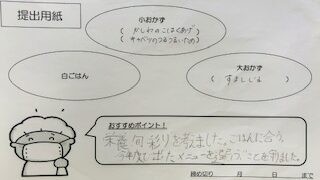 提出用紙
小おかず
( かしわのこはくあげ )
( キャベツのつるつるいため )
白ごはん
大おかず
( すましじる )
おすすめポイント!
栄養、旬、彩りを考えました。ごはんに合う、
今年度に出たメニューを
ことを
ました。
締め切り 月 日 まで